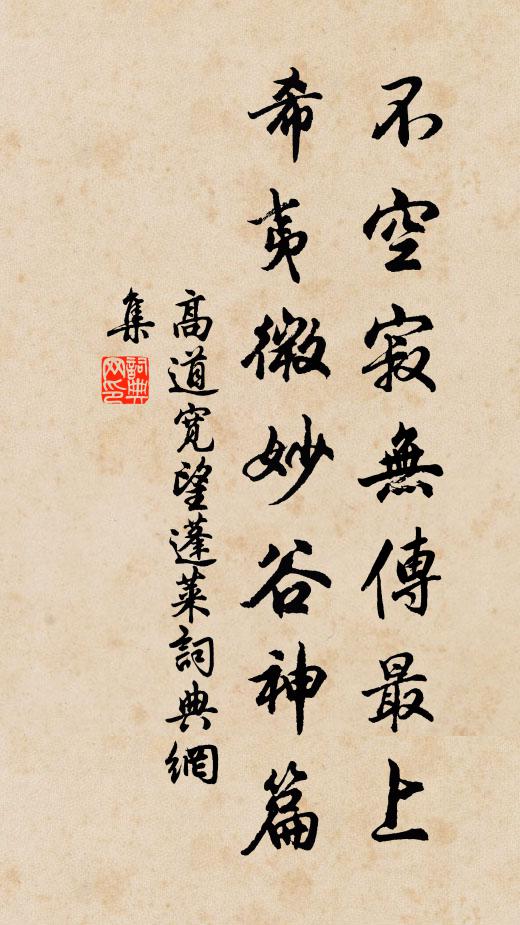 不空寂無傳最上
希夷微妙谷神篇
高道寛望蓬萊詞典網
集
詞典
网印